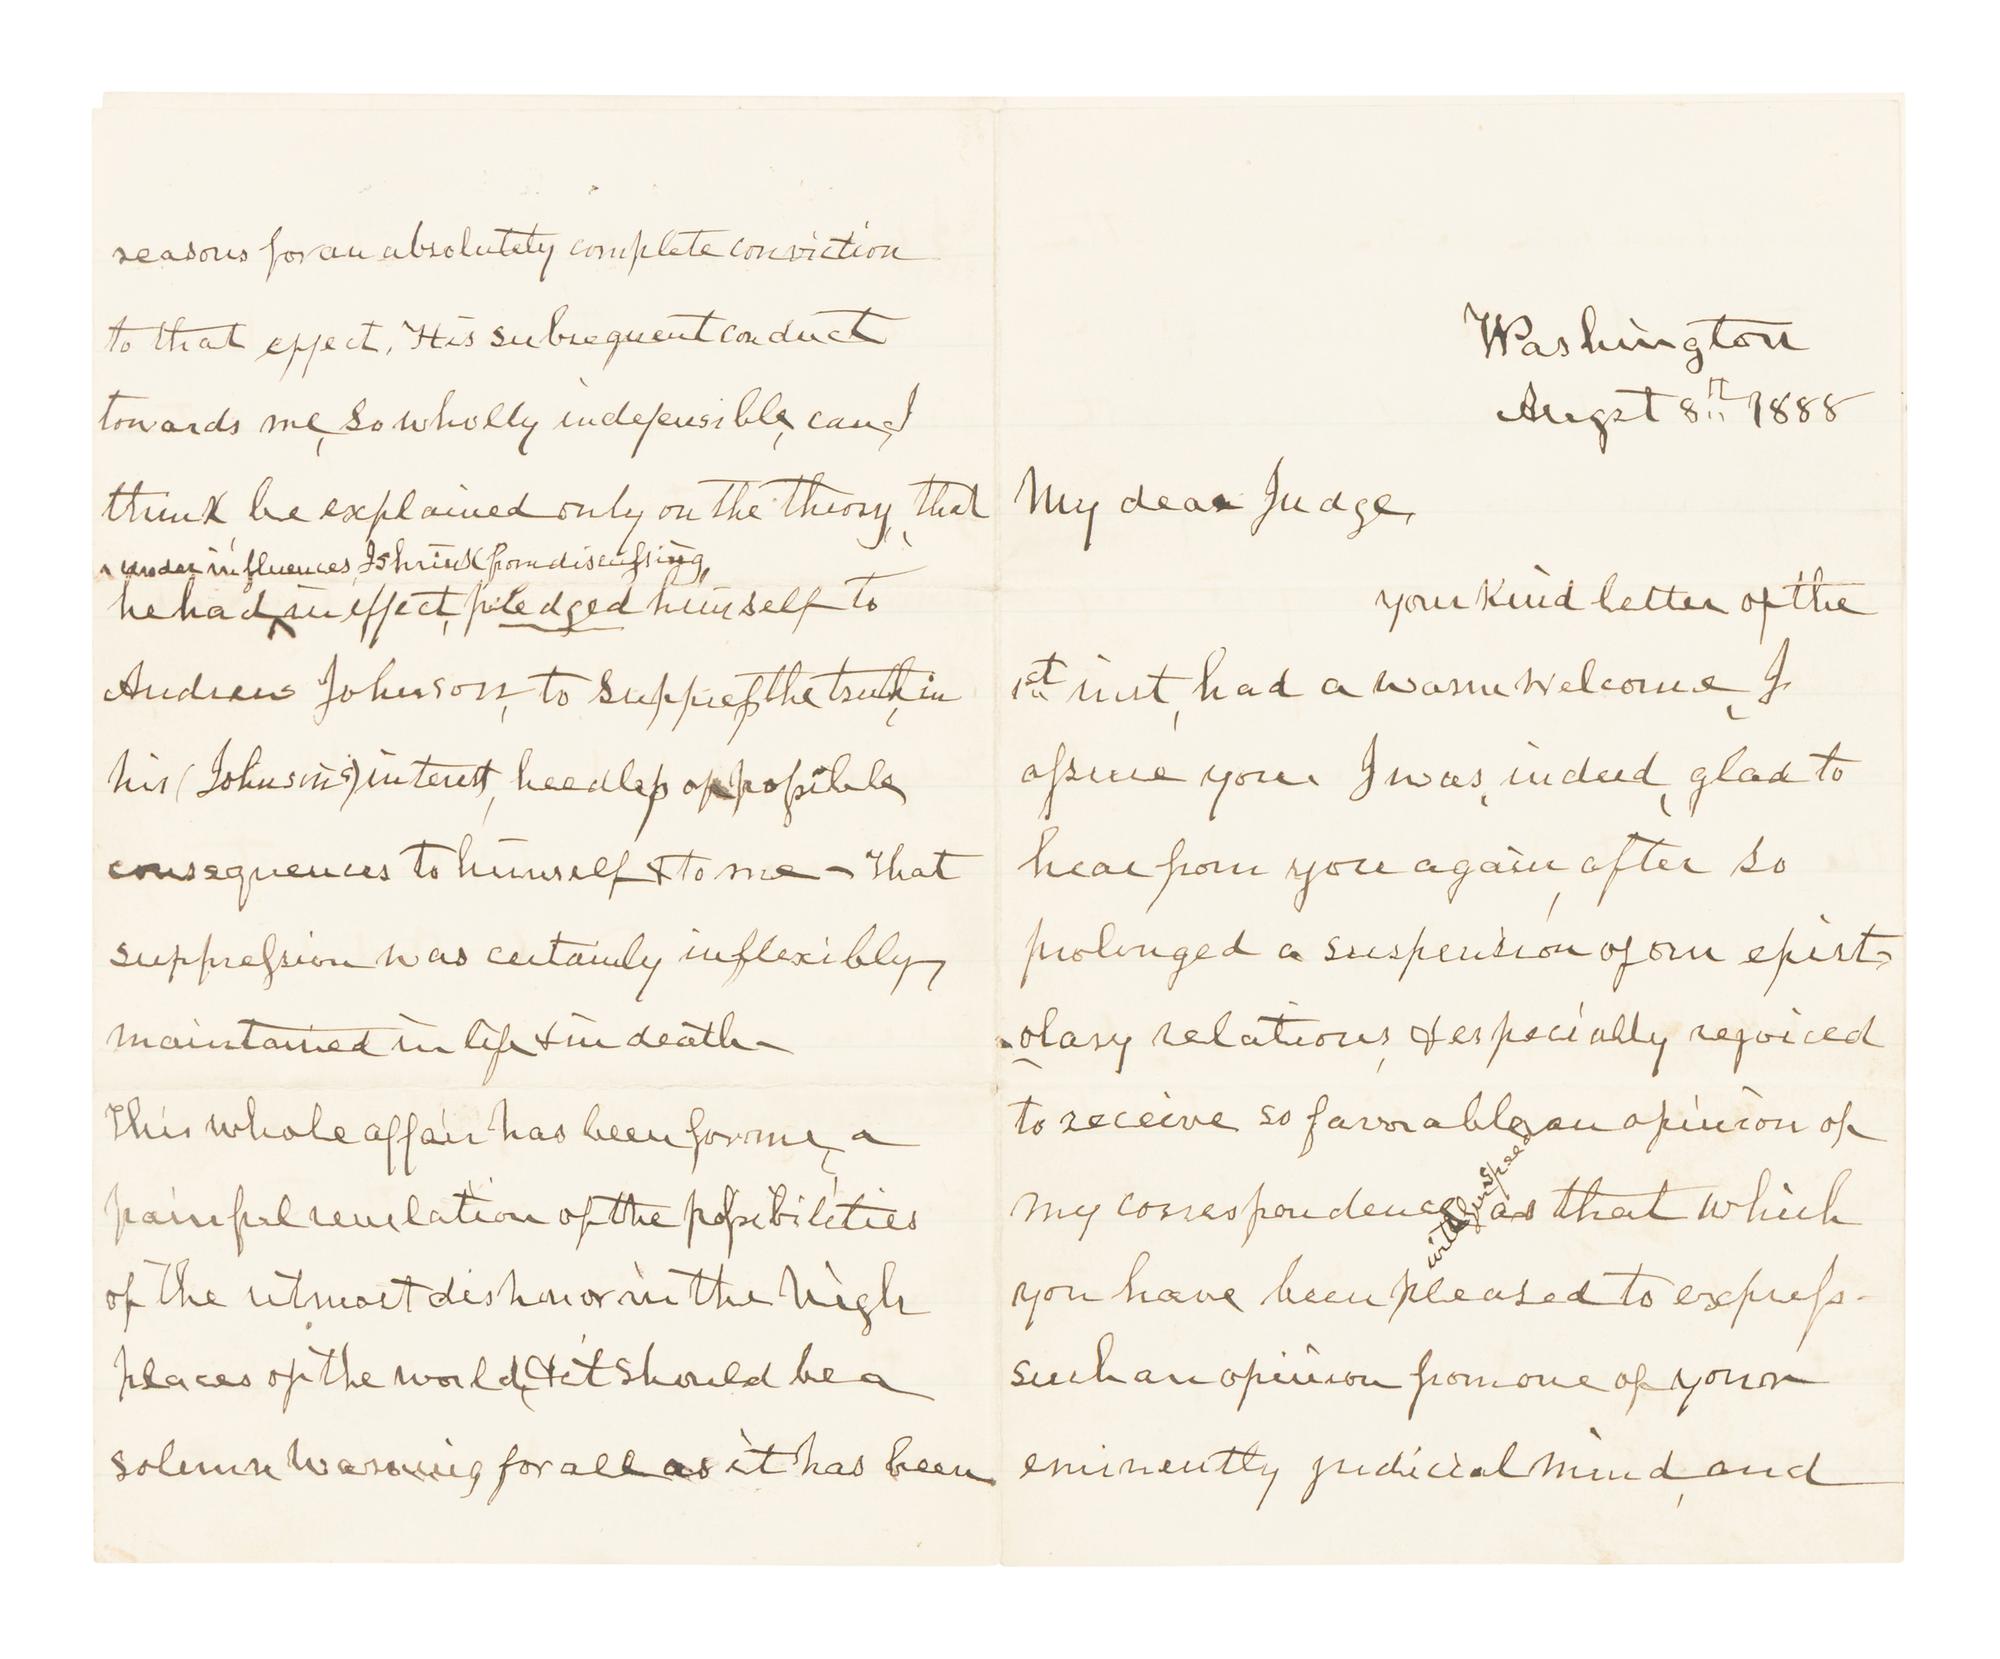 reasons for an absolutely complete conviction
to that effect. His subsequent conduct
towards me, so wholly indefensible, can I
think be explained only on the theory, that
under influences, I shrink from discussing,
he had in effect, pledged himself to
Andrew Johnson, to suppress the truth, in
his (Johnson's) interest, heedless of possible
consequences to himself & to me – That
suppression was certainly inflexibly,
maintained in life & in death –
This whole affair has been for me, a
painful revelation of the possibilities
of the utmost dishonor in the high
places of the world, & it should be a
solemn warning for all as it has been
Washington
Augst 8th 1888
My dear Judge,
your kind letter of the
1st inst, had a warm welcome, I
assure you. I was, indeed, glad to
hear from you again, after so
prolonged a suspension of our epist-
olary relations, & especially rejoiced
to receive so favorable an opinion of
with Speed
my correspondence as that which
you have been pleased to express –
such an opinion from one of your
eminently judicial mind, and